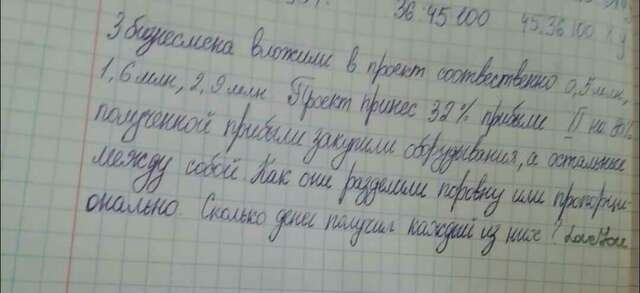 36 45 100 45.36 100
3 бизнесмена вложили в проект соотвественно 0,5 млн,
1,6 млн, 2,9 млн Проект принес 32% прибыли П на 80%
полученной прибыли закупили оборудивания, а остальные
между собой. Как они разделили поровну или пропорци-
онально. Сколько денег получил каждый из них?